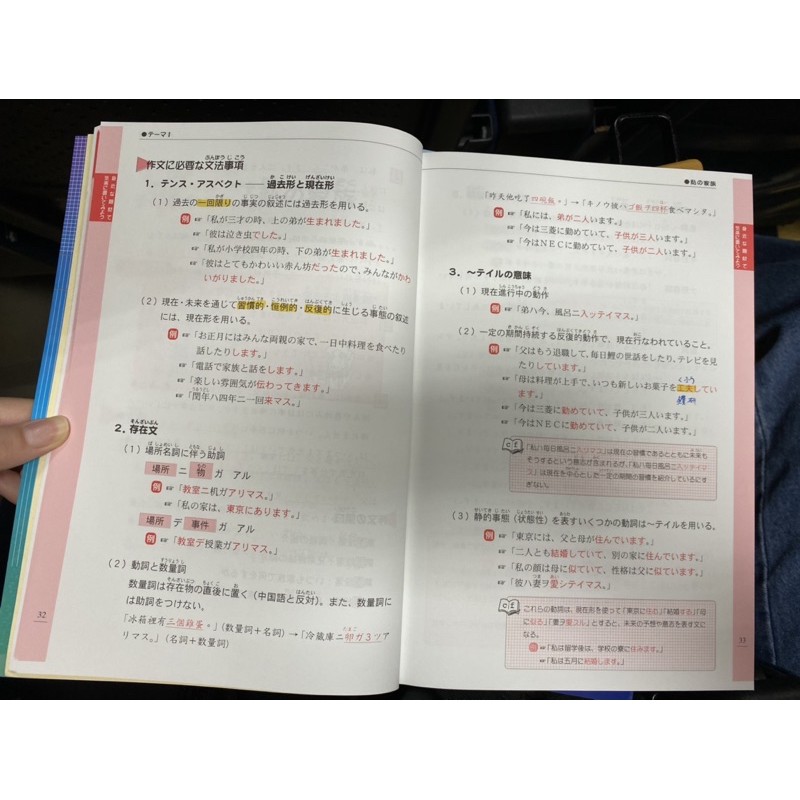 ●テーマ1
作文に必要な文法事項
1．テンス・アスペクト ── 過去形と現在形
（1）過去の一回限りの事実の叙述には過去形を用いる。
例 ☞「私が三才の時、上の弟が生まれました。」
☞「彼は泣き虫でした。」
☞「私が小学校四年の時、下の弟が生まれました。」
☞「彼はとてもかわいい赤ん坊だったので、みんながかわ
いがりました。」
（2）現在・未来を通じて習慣的・恒例的・反復的に生じる事態の叙述
には、現在形を用いる。
例 ☞「お正月にはみんな両親の家で、一日中料理を食べたり
話したりします。」
☞「電話で家族と話をします。」
☞「楽しい雰囲気が伝わってきます。」
☞「閏年ハ四年ニ一回来マス。」
2．存在文
（1）場所名詞に伴う助詞
場所 ニ 物 ガ アル
例 ☞「教室ニ机ガアリマス。」
☞「私の家は、東京にあります。」
場所 デ 事件 ガ アル
例 ☞「教室デ授業ガアリマス。」
（2）動詞と数量詞
数量詞は存在物の直後に置く（中国語と反対）。また、数量詞に
は助詞をつけない。
「冰箱裡有三個雞蛋。」（数量詞＋名詞）→「冷蔵庫ニ卵ガ３ツア
リマス。」（名詞＋数量詞）
32
●私の家族
「昨天他吃了四碗飯。」→「キノウ彼ハゴ飯ヲ四杯食ベマシタ。」
例 ☞「私には、弟が二人います。」
☞「今は三菱に勤めていて、子供が三人います。」
☞「今はＮＥＣに勤めていて、子供が二人います。」
3．～テイルの意味
（1）現在進行中の動作
例 ☞「弟ハ今、風呂ニ入ッテイマス。」
（2）一定の期間持続する反復的動作で、現在行なわれていること。
例 ☞「父はもう退職して、毎日鯉の世話をしたり、テレビを見
たりしています。」
☞「母は料理が上手で、いつも新しいお菓子を工夫してい
ます。」
☞「今は三菱に勤めていて、子供が三人います。」
☞「今はＮＥＣに勤めていて、子供が二人います。」
「私ハ毎日風呂ニ入リマス」は現在の習慣であるとともに未来も
そうするという意志が含まれるが、「私ハ毎日風呂ニ入ッテイマ
ス」は現在を中心とした一定の期間の習慣を紹介しているにす
ぎない。
（3）静的事態（状態性）を表すいくつかの動詞は～テイルを用いる。
例 ☞「東京には、父と母が住んでいます。」
☞「二人とも結婚していて、別の家に住んでいます。」
☞「私の顔は母に似ていて、性格は父に似ています。」
☞「彼ハ妻ヲ愛シテイマス。」
これらの動詞は、現在形を使って「東京に住む」「結婚する」「母
に似る」「妻ヲ愛スル」とすると、未来の予想や意志を表す文に
なる。
例 ☞「私は留学後は、学校の寮に住みます。」
☞「私は五月に結婚します。」
33